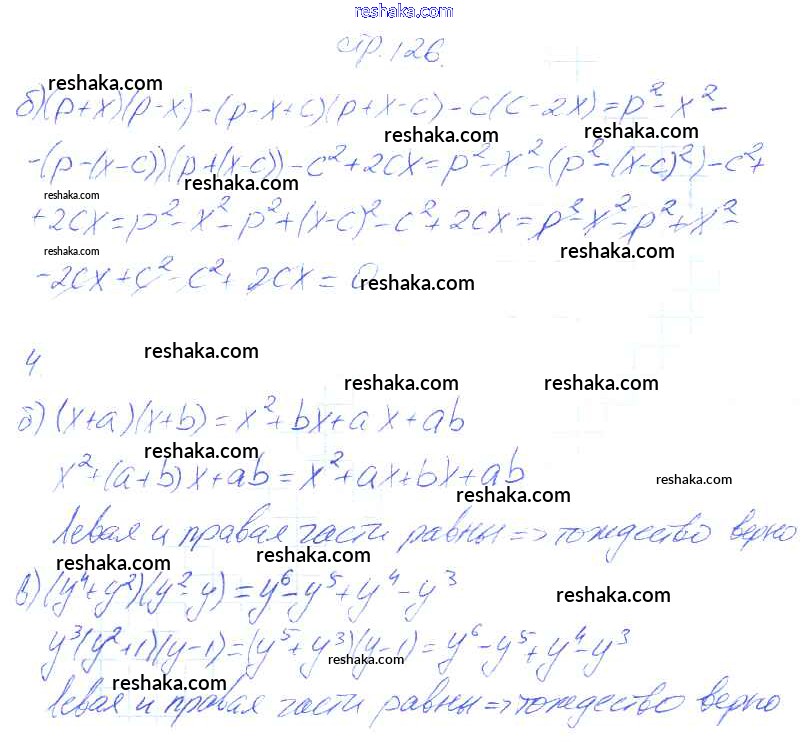 reshaka.com
стр. 126.
reshaka.com
б) (p+x)(p-x)-(p-x+c)(p+x-c)-c(c-2x)=p²-x²-
reshaka.com reshaka.com
-(p-(x-c))(p+(x-c))-c²+2cx=p²-x²-(p²-(x-c)²)-c²+
reshaka.com reshaka.com
+2cx=p²-x²-p²+(x-c)²-c²+2cx=p²-x²-p²+x²-
reshaka.com reshaka.com
-2cx+c²-c²+2cx=0
reshaka.com
4.
reshaka.com
reshaka.com reshaka.com
б) (x+a)(x+b)=x²+bx+ax+ab
reshaka.com
x²+(a+b)x+ab=x²+ax+bx+ab
reshaka.com reshaka.com
Левая и правая части равны => тождество верно
reshaka.com reshaka.com
в) (y⁴+y²)(y²-y)=y⁶-y⁵+y⁴-y³
reshaka.com
y³(y²+1)(y-1)=(y⁵+y³)(y-1)=y⁶-y⁵+y⁴-y³
reshaka.com
reshaka.com
Левая и правая части равны => тождество верно